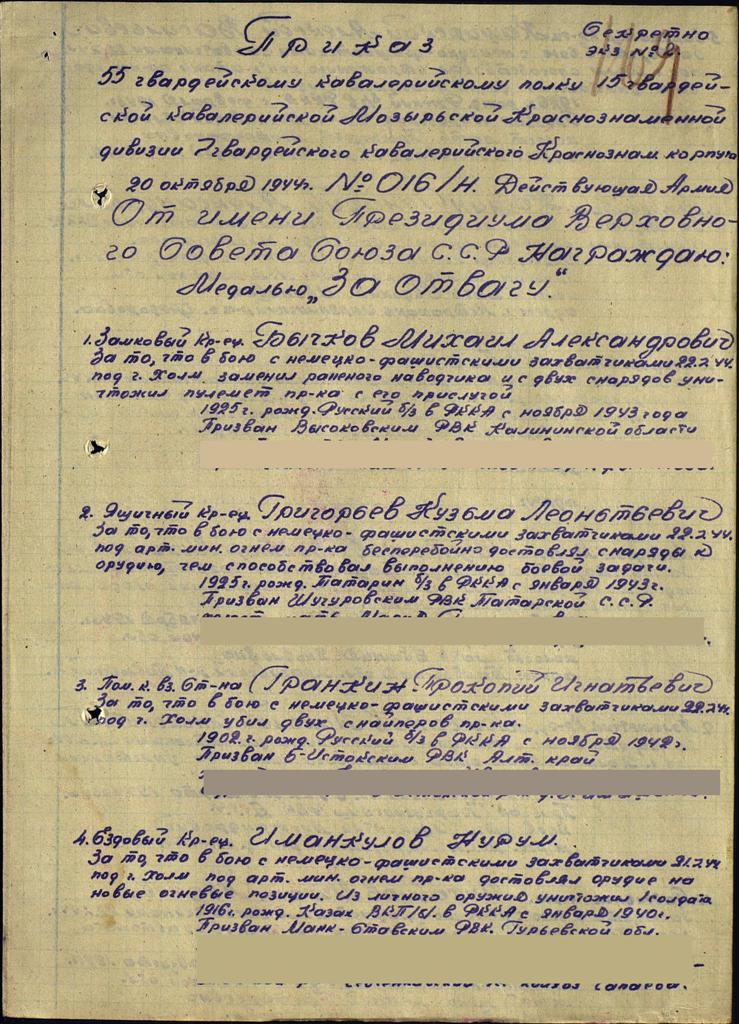 Приказ
Секретно
экз № 2
55 гвардейскому кавалерийскому полку 15 гвардей-
ской кавалерийской Мозырьской Краснознаменной
дивизии 7 гвардейского кавалерийского Краснознам. корпуса
20 октября 1944г. № 016/н. Действующая Армия
От имени Президиума Верховно-
го Совета Союза С.С.Р Награждаю:
Медалью „За отвагу."
1. Замковый Кр-ец. Бычков Михаил Александрович
За то, что в бою с немецко-фашистскими захватчиками 22.7.44.
под г. Холм. заменил раненого наводчика и с двух снарядов уни-
чтожил пулемет пр-ка с его прислугой
1925 г. рожд. Русский б/з в РККА с ноября 1943 года
Призван Высоковским РВК Калининской области
2. Ящичный Кр-ец. Григорьев Кузьма Леонтьевич
За то, что в бою с немецко-фашистскими захватчиками 22.7.44.
под арт. мин. огнем пр-ка бесперебойно доставлял снаряды к
орудию, чем способствовал выполнению боевой задачи.
1925 г. рожд. Татарин б/з в РККА с января 1943 г.
Призван Шугуровским РВК Татарской С.С.Р.
3. Пом. к. вз. Ст-на Гранкин Прокопий Игнатьевич
За то, что в бою с немецко-фашистскими захватчиками 22.7.44г.
под г. Холм убил двух снайперов пр-ка.
1902 г. рожд. Русский б/з в РККА с ноября 1942 г.
Призван б-Истокским РВК Алт. край
4. Ездовый Кр-ец. Иманкулов Нурум.
За то, что в бою с немецко-фашистскими захватчиками 21.7.44
под г. Холм под арт. мин. огнем пр-ка доставлял орудие на
новые огневые позиции. Из личного оружия уничтожил 1 солдата
1916 г. рожд. Казак ВКП/б/. в РККА с января 1940 г.
Призван Манк-Ставским РВК. Гурьевской обл.
колхоз Сапаров.